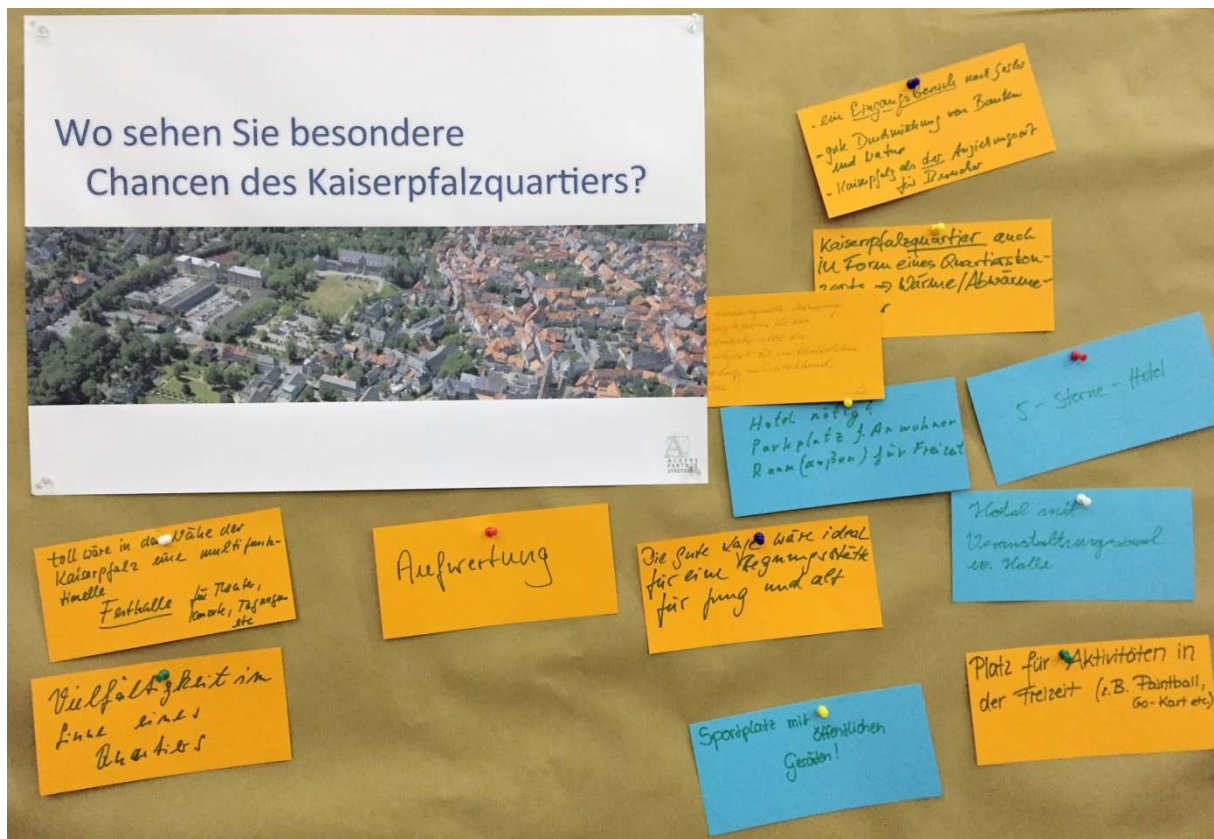 Wo sehen Sie besondere
Chancen des Kaiserpfalzquartiers?
ACKERS
PARTNER
STÄDTEBAU
- ein Eingangsbereich nach Goslar
- gute Durchmischung von Bauten
und Natur
- Kaiserpfalz als der Anziehungsort
für Besucher
Kaiserpfalzquartier auch
in Form eines Quartierskon-
→ Wärme/Abwärme-
Hotel nötig?
Parkplatz f. Anwohner
Raum (außen) für Freizeit
5-Sterne-Hotel
Hotel mit
Veranstaltungssaal
Halle
toll wäre in der Nähe der
Kaiserpfalz eine multifunk-
tionelle
Festhalle für Theater,
Konzerte, Tagungen
etc
Aufwertung
Die gute Lage wäre ideal
für eine Begnungsstätte
für jung und alt
Vielfältigkeit im
Sinne eines
Quartiers
Sportplatz mit öffentlichen
Geräten!
Platz für Aktivitäten in
der Freizeit (z.B. Paintball,
Go-Kart etc)